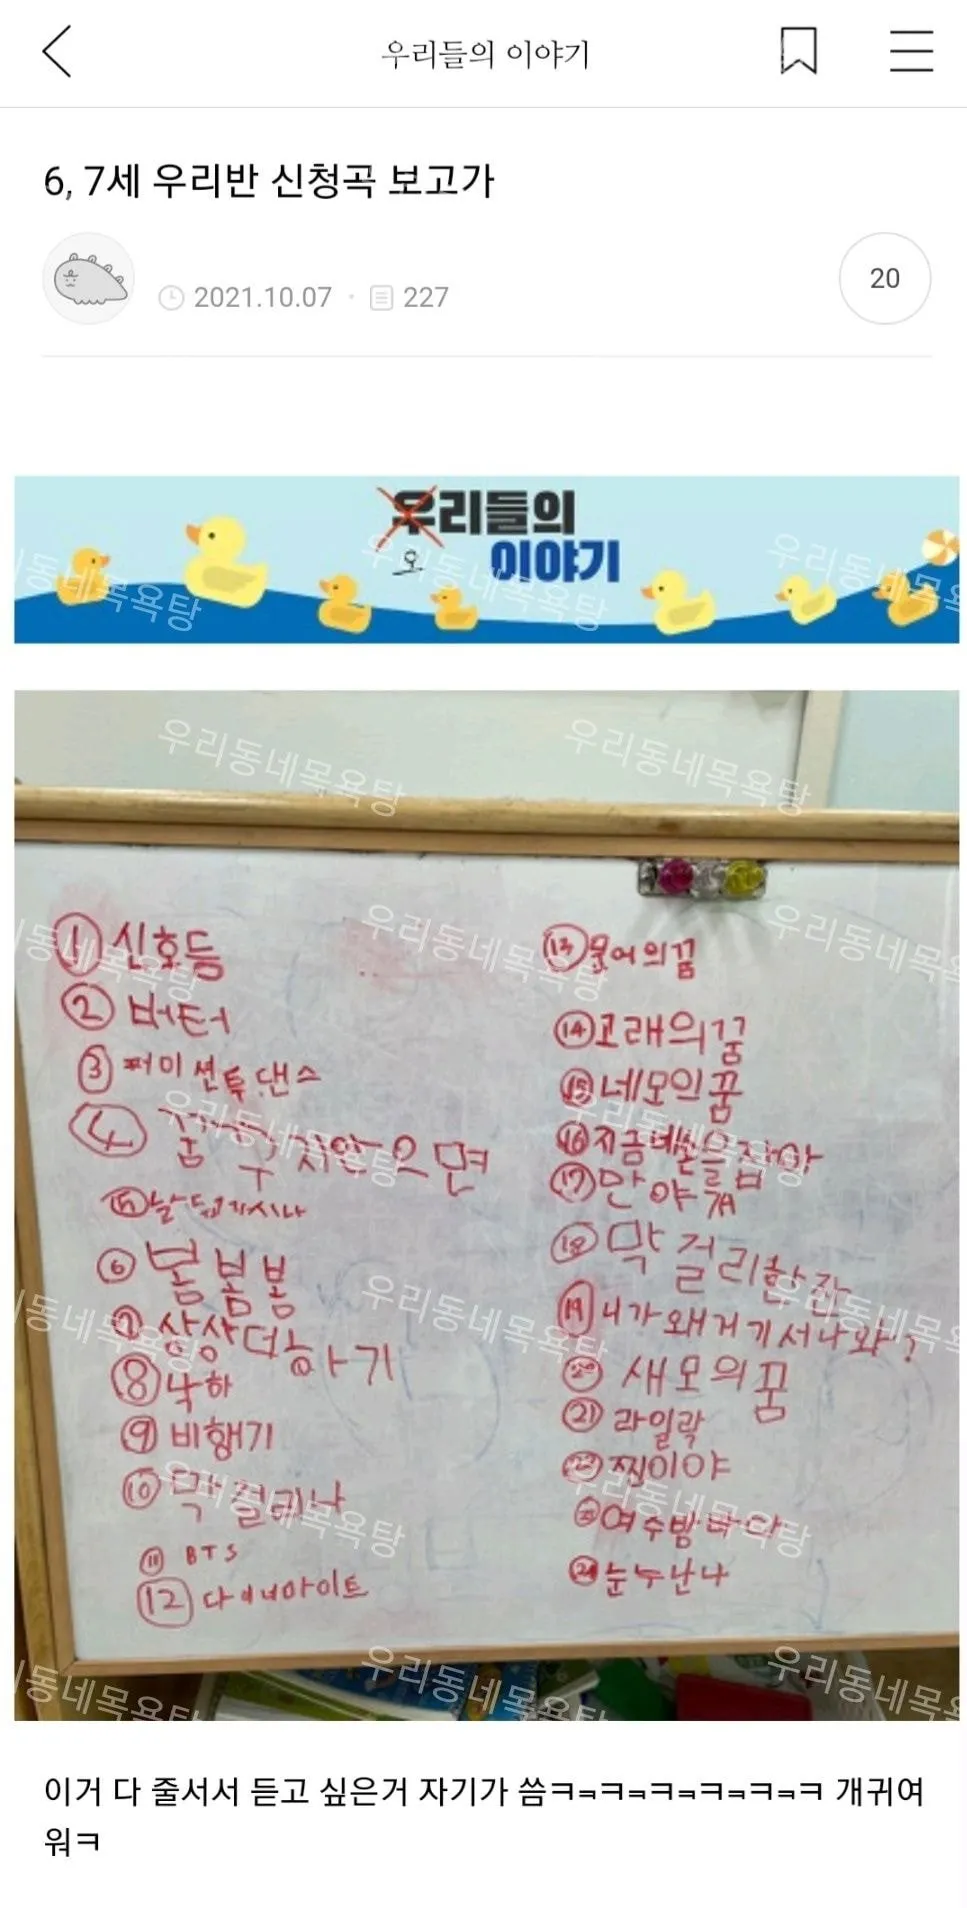 우리들의 이야기
6, 7세 우리반 신청곡 보고가
2021.10.07 · 227
20
우리들의
오 이야기
① 신호등
② 버터
③ 퍼미션투댄스
④ 꿈꾸지않으면
⑤
⑥ 봄봄봄
⑦ 상상더하기
⑧ 낙하
⑨ 비행기
⑩ 막걸리나
⑪ BTS
⑫ 다이너마이트
⑬ 문어의꿈
⑭ 고래의꿈
⑮ 네모의꿈
⑯ 지금네손을잡아
⑰ 만약에
⑱ 막걸리한잔
⑲ 니가왜거기서나와?
⑳ 새모의꿈
㉑ 라일락
㉒ 찐이야
㉓ 여수밤바다
㉔ 눈누난나
이거 다 줄서서 듣고 싶은거 자기가 씀ㅋㅋㅋㅋㅋㅋㅋㅋㅋㅋㅋ 개귀여
워ㅋ
우리동네목욕탕